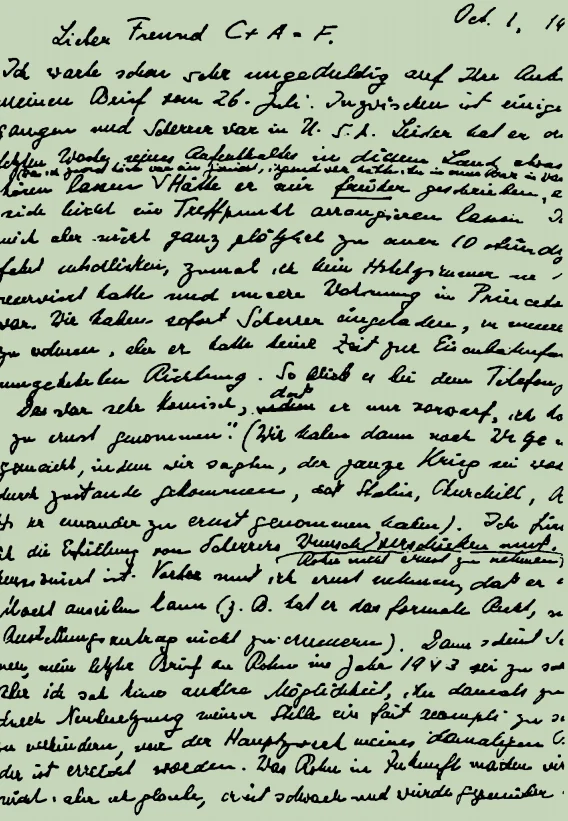 Oct. 1, 19
Lieber Freund C + A = F.
Ich warte schon sehr ungeduldig auf Ihre
meinen Brief vom 26. Juli. Inzwischen ist einige
gangen und Scherrer war in U. S. A. Leider hat er
letzten Woche seines Aufenthaltes in diesem Land etwas
hören lassen Hätte er mir früher geschrieben,
sich leicht ein Treffpunkt arrangieren lassen
mich aber nicht ganz plötzlich zu einer 10
fahrt entschliessen, zumal ich kein Hotelzimmer
reserviert hatte und unsere Wohnung in Princeton
war. Wir haben sofort Scherrer eingeladen, in
zu wohnen, aber er hatte keine Zeit zur
umgekehrten Richtung. So blieb es bei dem Telefon
Das war sehr komisch, dass er mir vorwarf, ich
zu ernst genommen". (Wir haben dann noch
gemacht, indem wir sagten, der ganze Krieg sei
durch zustande gekommen, dass Stalin, Churchill,
einander zu ernst genommen haben). Ich
die Erfüllung von Scherrers Wunsch
Rohn nicht ernst zu nehmen
ist. Vorher muss ich ernst nehmen, dass er
Macht ausüben kann (z. B. hat er das formale Recht,
Anstellungsvertrag nicht zu erneuern). Dann scheint
mein letzter Brief an Rohn im Jahr 1943 sei zu
Aber ich sah keine andere Möglichkeit, ihn damals
durch Neubesetzung meiner Stelle ein fait accompli zu
zu verhindern, was der Hauptzweck meines damaligen
der ist erreicht worden. Was Rohn in Zukunft machen
nicht. aber ich glaube, er ist schwach und würde gegenüber